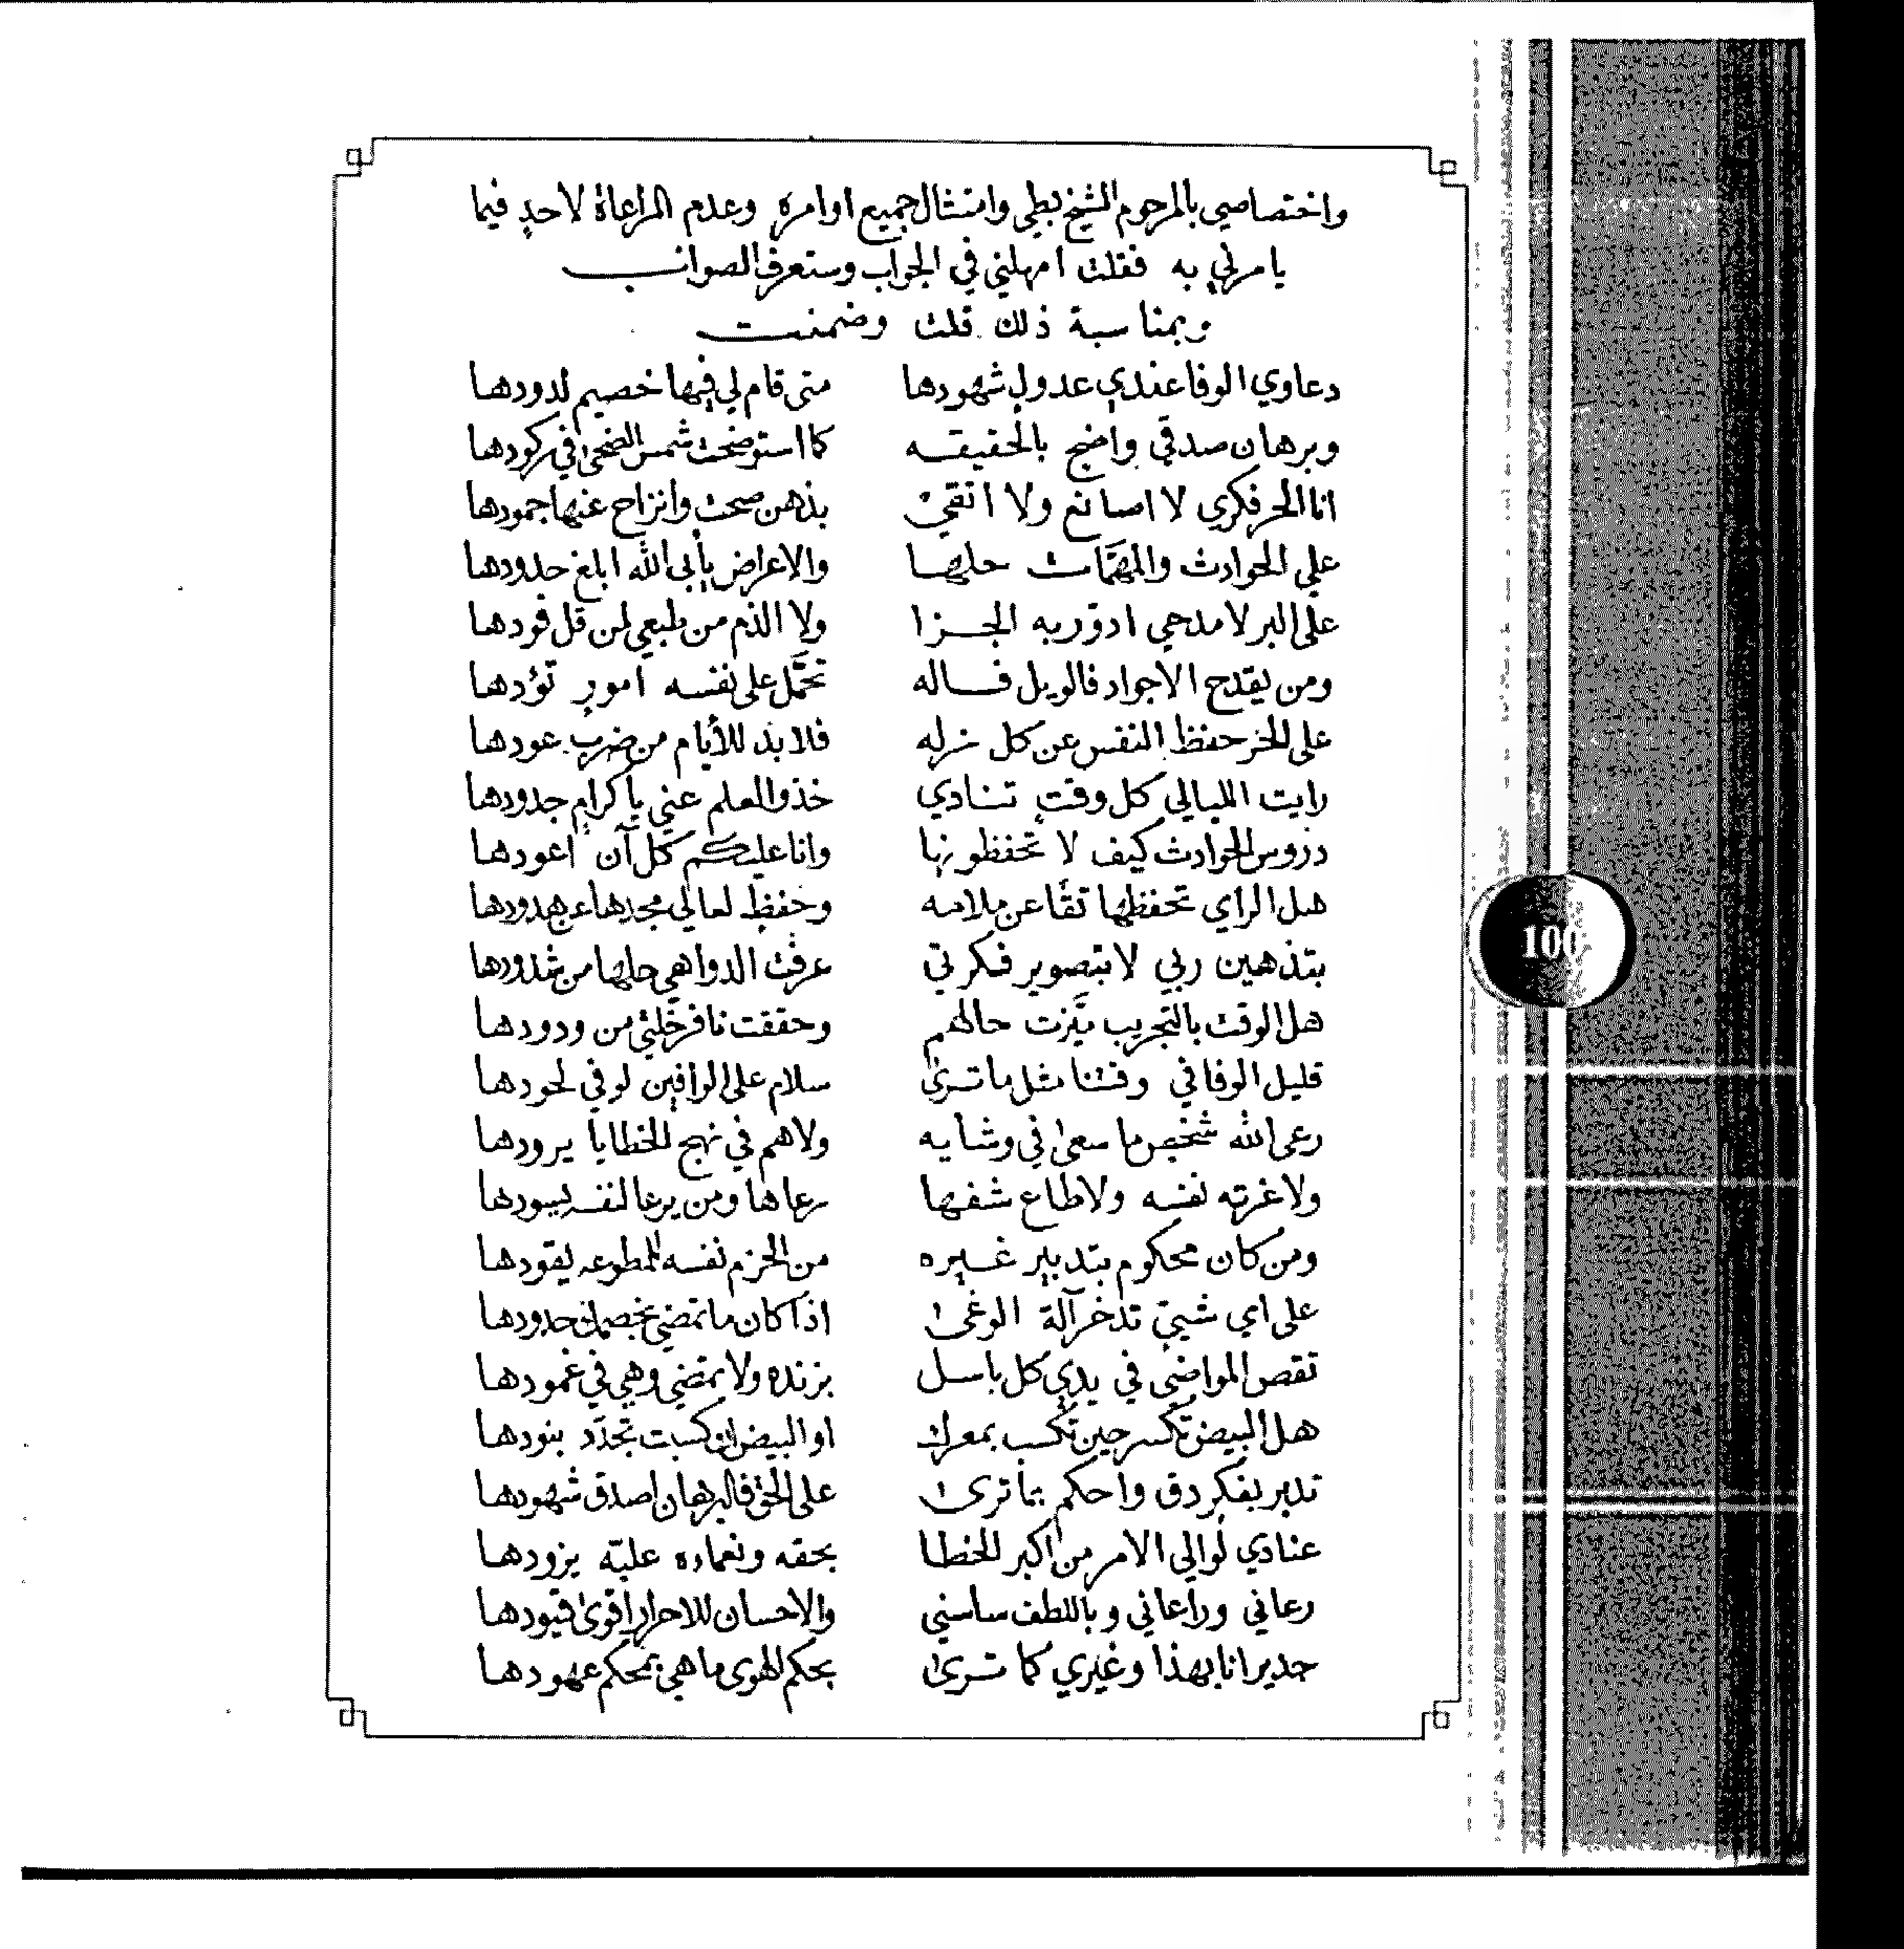 واختصاصي بالمرحوم الشيخ بطي وامتثال جميع اوامره وعدم المراعاة لاحدٍ فيما
يامرني به فقلت امهلني في الجواب وستعرف الصوائب
وبمناسبة ذلك قلت وضمنت
دعاوي الوفا عندي عدولٍ شهودها متى قام لي فيها خصيم لدودها
وبرهان صدقي واضح بالحقيقه كما استوضحت شمس الضحى في ركودها
انا الحر فكري لا اصانع ولا اتقي بذهن صحت وانزاح عنها جمودها
على الحوادث والمهمّات حلها والاعراض يأبى الله ابلغ حدودها
على البر لا مدحي ادوّر به الجزا ولا الذم من طبعي لمن قل فودها
ومن يقدح الاجواد فالويل فاله تحمّل على نفسه امورٍ تؤدها
على الحر حفظ النفس عن كل زله فلا بد للأيام من ضرب عودها
رايت الليالي كل وقتٍ تنادي خذوا العلم عني يا كرامٍ جدودها
دروس الحوادث كيف لا تحفظونها وانا عليكم كل آن اعودها
هل الراي تحفظها تقّا عن ملامه وحفظٍ لعالي مجدها عن هدودها
بتذهين ربي لا بتصوير فكرتي عرفت الدواهي حلها من شدودها
هل الوقت بالتجريب ميّزت حالهم وحققت نافر خلّتي من ودودها
قليل الوفا في وقتنا مثل ما ترى سلام على الوافين لو في لحودها
رعى الله شخصٍ ما سعى في وشايه ولا هم في نهج الخطايا يرودها
ولا غرته نفسه ولا طاع شفها رعاها ومن يرعا لنفسه يسودها
ومن كان محكوم بتدبير غيره من الحزم نفسه للمطوعه يقودها
على اي شيئ تدخر آلة الوغى اذا كان ما تمضي بخصمك حدودها
تقص المواضي في يدي كل باسل بزنده ولا تمضي وهي في غمودها
هل البيض تكسر حين تكسب بمعرك او البيض ان كسبت تجدّد بنودها
تدبر بفكر دق واحكم بما ترى على الحق فالبرهان اصدق شهودها
عنادي لوالي الامر من اكبر الخطا بحقه ونعماده عليّه يزودها
رعاني وراعاني وباللطف ساسني والاحسان للاحرار اقوى قيودها
جدير انا بهذا وغيري كما ترى بحكم الهوى ما هي بمحكم عهودها
100